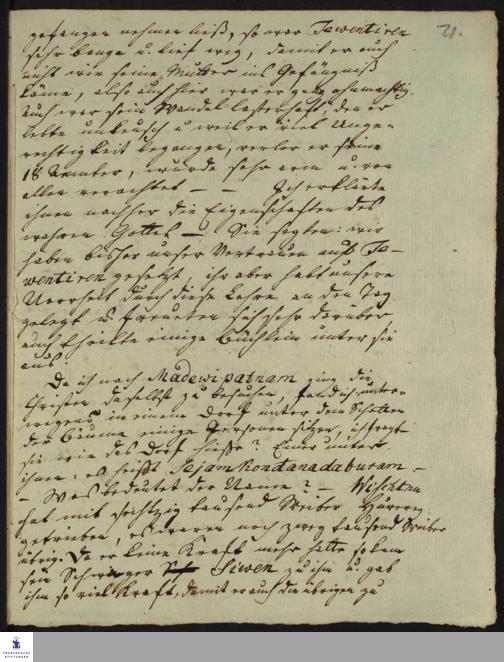 21.
gefangen nehmen ließ, so war Dewentiren
sehr bange u. lief weg, damit er auch
nicht wie seine Mutter ins Gefängniß
käme, also auch hier war er ganz ohnmächtig.
Auch war sein Wandel lasterhaft, denn er
lebte unkeusch u. weil er viel Unge-
rechtigkeit begangen, verlor er seine
18 Aemter, wurde sehr arm u. von
allen verachtet — — Ich erklärte
ihnen nachher die Eigenschaften des
wahren Gottes — Sie sagten: wir
haben bisher unser Vertrauen auf De-
wentiren gesetzt, ihr aber habt unsere
Narrheit durch diese Lehre an den Tag
gelegt u. freueten sich sehr darüber,
auch theilte einige Büchlein unter sie
aus.
Da ich nach Madewipatnam ging die
Christen daselbst zu besuchen, fand ich unter-
wegens in einem Dorf unter dem Schatten
der Bäume einige Personen sitzen, ich fragte
sie wie das Dorf hieße? Einer unter
ihnen: es heißt Sejamkondanadaburam. —
— Was bedeutet der Name? — Wischtnu
hat mit sechtzig tausend Weiber Hurerey
getrieben, es waren noch zwey tausend Weiber
übrig. Da er keine Kraft mehr hatte so kam
sein Schwager Siwen zu ihm u. gab
ihm so viel Kraft, damit er auch die übrigen zu
FRANCKESCHE
STIFTUNGEN